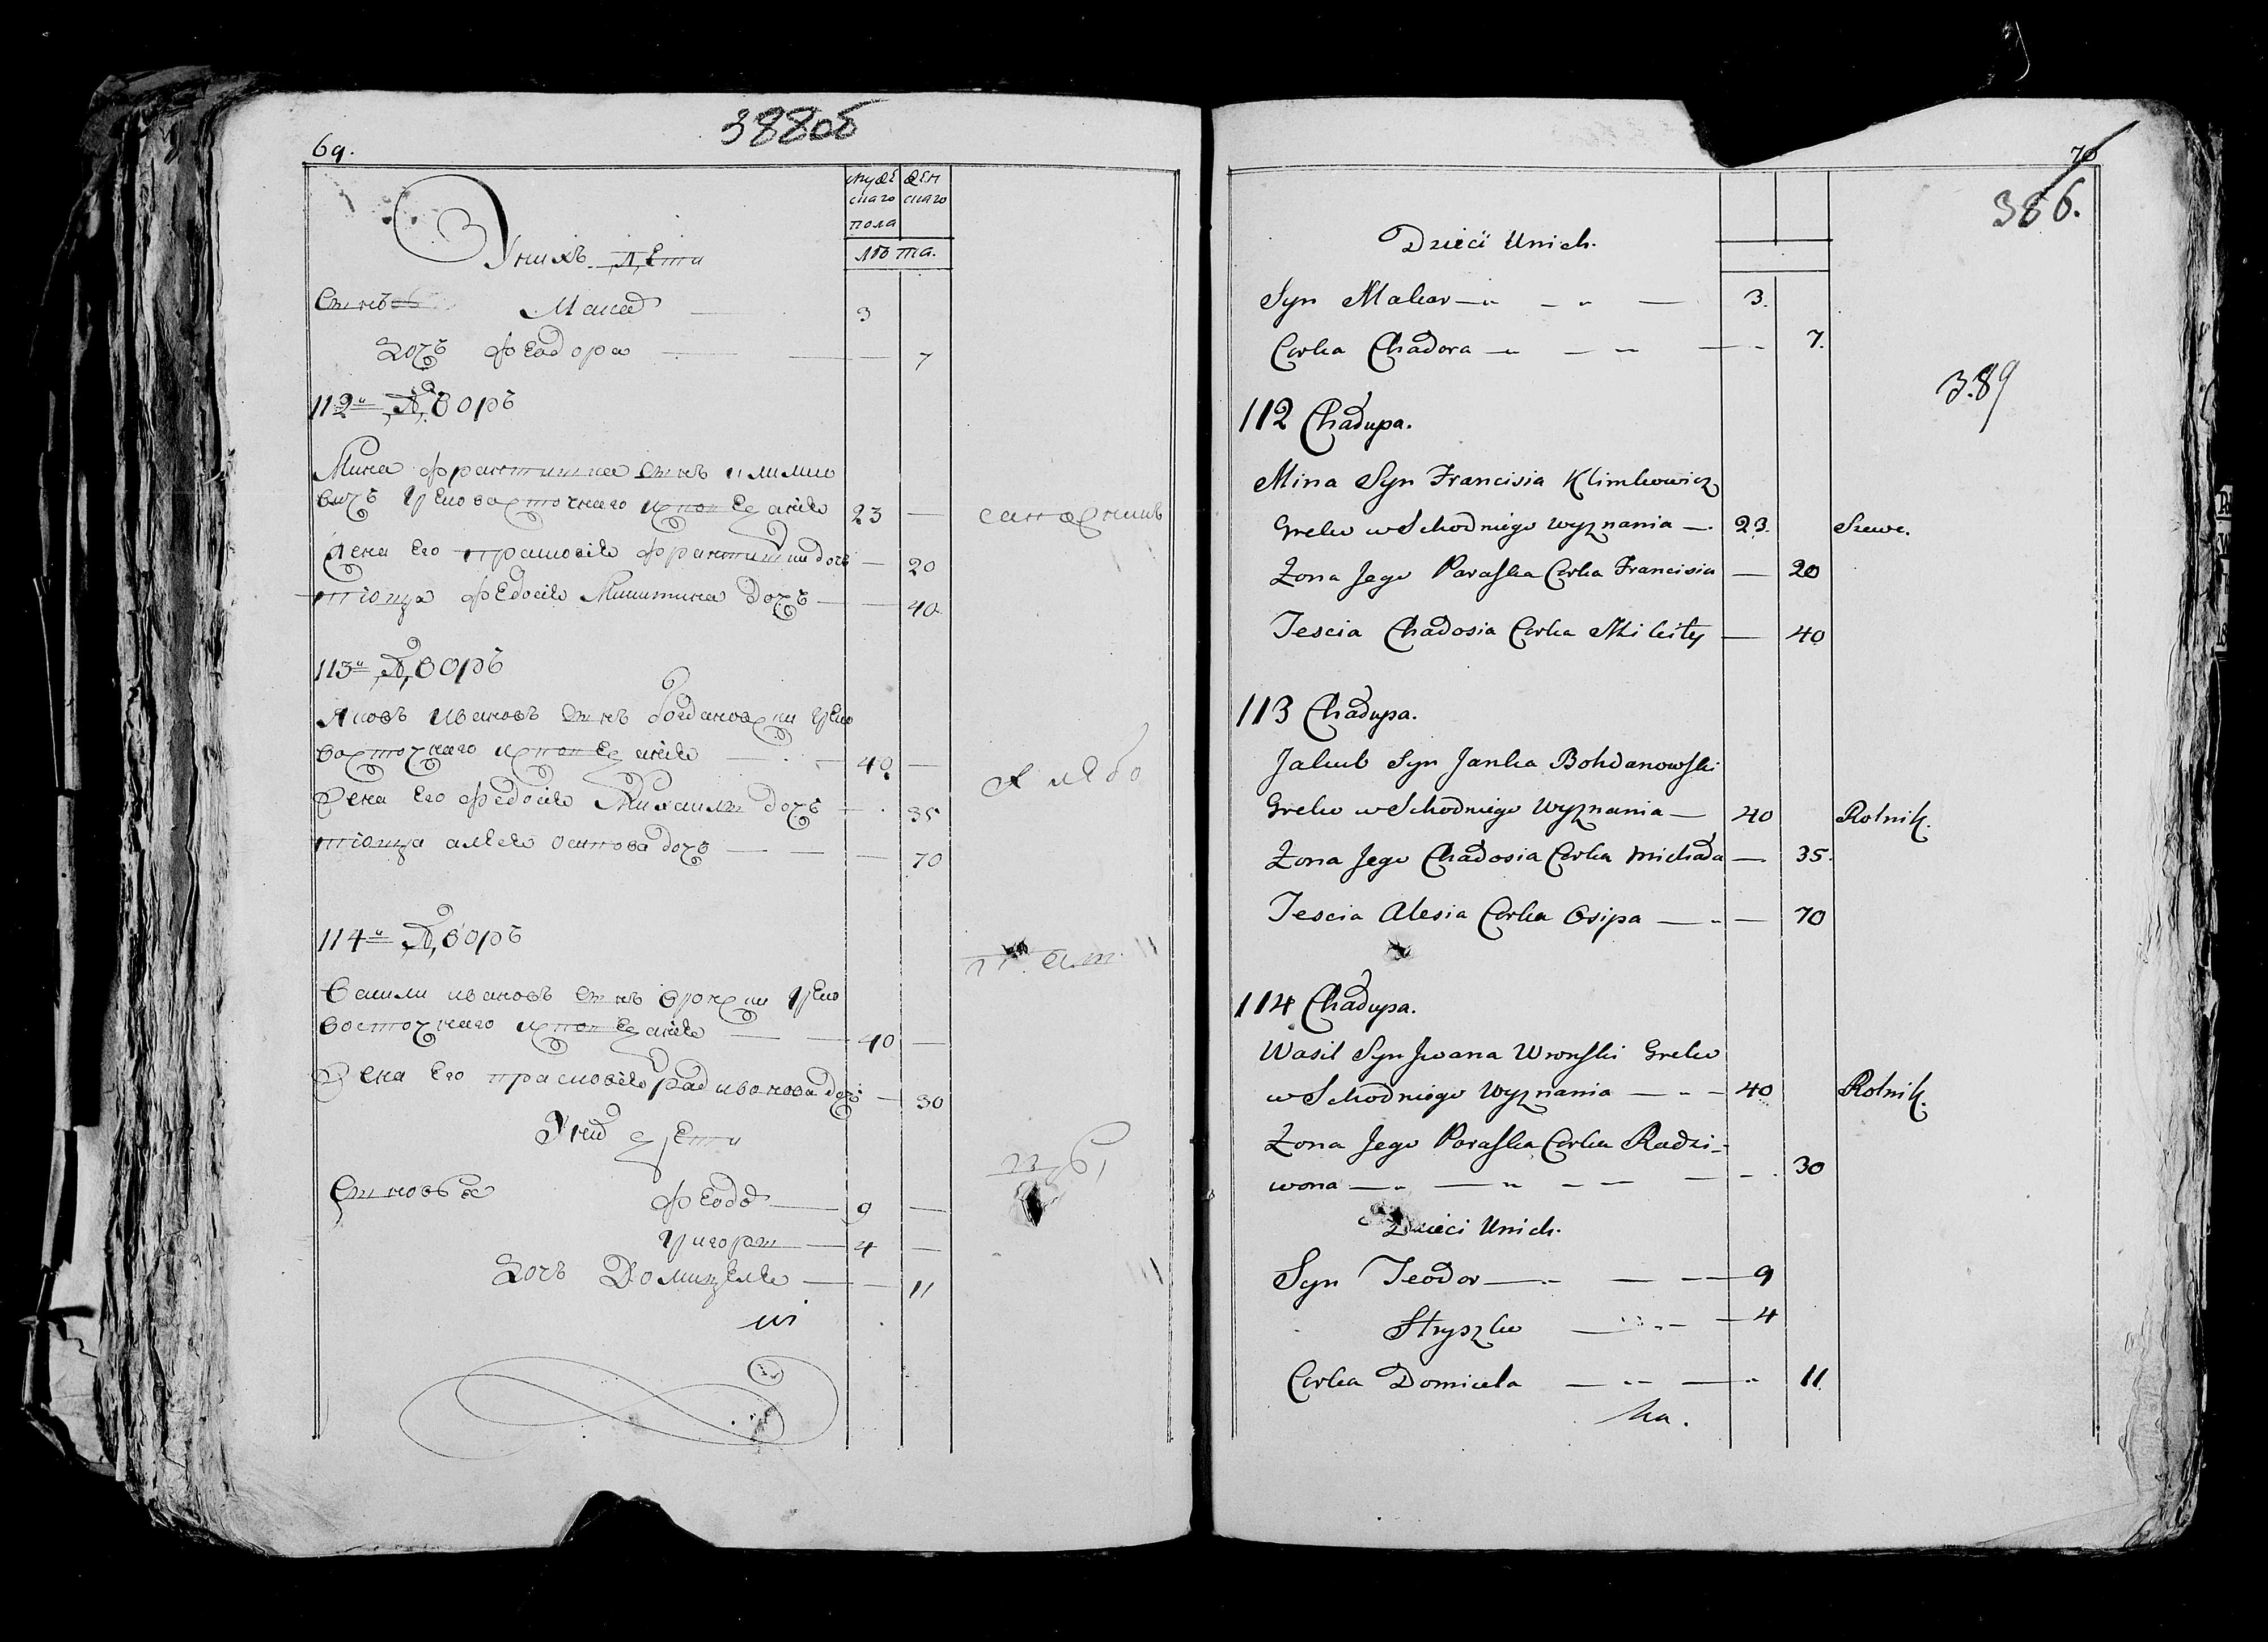 69.
388об
мужескаго пола
женскаго
лѣта.
У нихъ дети
Сынъ Макар 3
Дочь Феадора 7
112й Дворъ
Мина Франтишка сынъ климко
вичъ греко восточнаго исповеданія 23 сапожникъ
жена Его прасковія Франтишки дочь 20
тіоща Федосія Микитина дочь 40
113й Дворъ
Яковъ ивановъ сынъ богдановски греко
восточнаго исповеданія 40 хлебо
Жена Его Федосія Михаилы дочь 35
тіоща алеся осипова дочь 70
114й Дворъ
Васили ивановъ сынъ вронски греко
восточнаго исповеданія 40
Жена Его прасковія радивонова дочь 30
У них дети
Сыновья Феодор 9
Григоры 4
Дочь Домицеля 11
70
386.
389
Dzieci Unich.
Syn Makar 3.
Corka Chadora 7.
112 Chadupa.
Mina Syn Francisia Klimkowicz
Greko wSchodniego wyznania 23. Szewc.
Zona Jego Paraska Corka Francisia 20
Tescia Chadosia Corka Mikity 40
113 Chadupa.
Jakub Syn Janka Bohdanowski
Greko wSchodniego Wyznania 40 Rolnik.
Zona Jego Chadosia Corka Michada 35.
Tescia Alesia Corka Osipa 70
114 Chadupa.
Wasil Syn Jwana Wronski Greko
wSchodniego Wyznania 40 Rolnik.
Zona Jego Paraska Corka Radzi-
wona 30
Dzieci Unich.
Syn Teodor 9
Hryszko 4
Corka Domicela 11